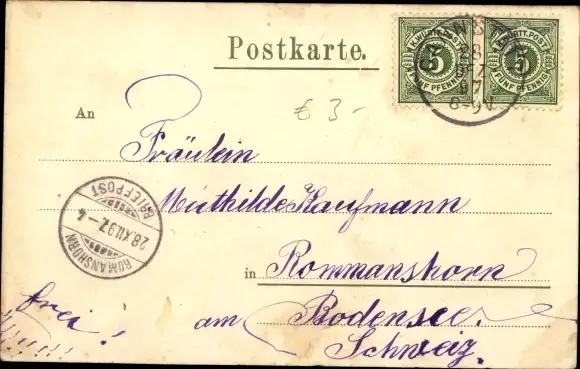 Postkarte.
K. WÜRTT. POST
5
FÜNF PFENNIG
K. WÜRTT. POST
5
FÜNF PFENNIG
28
DEZ
97
€ 3-
An
Fräulein
Mathilde Kaufmann
in Rommanshorn
am Bodensee.
Schweiz.
frei!
BRIEFPOST
28.XII.97.-4
ROMANSHORN